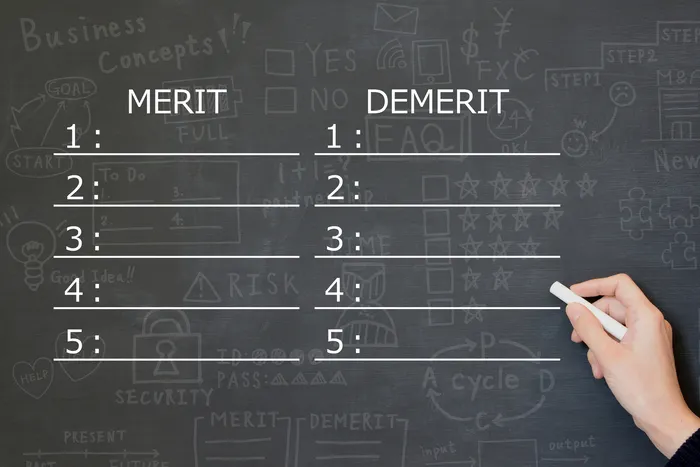 Business
Concepts!!
YES
NO
GOAL
START
FULL
MERIT
1 :
2 :
3 :
4 :
5 :
DEMERIT
1 :
2 :
3 :
4 :
5 :
$ ¥
FX €
STEP1
STEP2
STEP
M&A
FAQ
24
OK!
New
To Do
1.
2.
3.
4.
1+1=?
partnership
TIME
Good Idea!!
RISK
HELP
SECURITY
ID:
PASS:
P
A cycle D
C
MERIT
DEMERIT
PRESENT
PAST
FUTURE
input
output